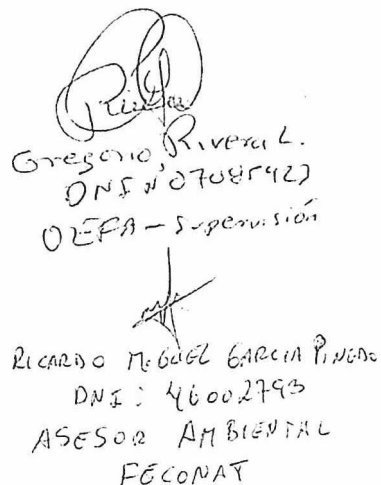 Gregorio Rivera L.
DNI Nº 07085423
OEFA - Supervisión
RICARDO MIGUEL GARCIA PINEDO
DNI: 46002793
ASESOR AMBIENTAL
FECONAT